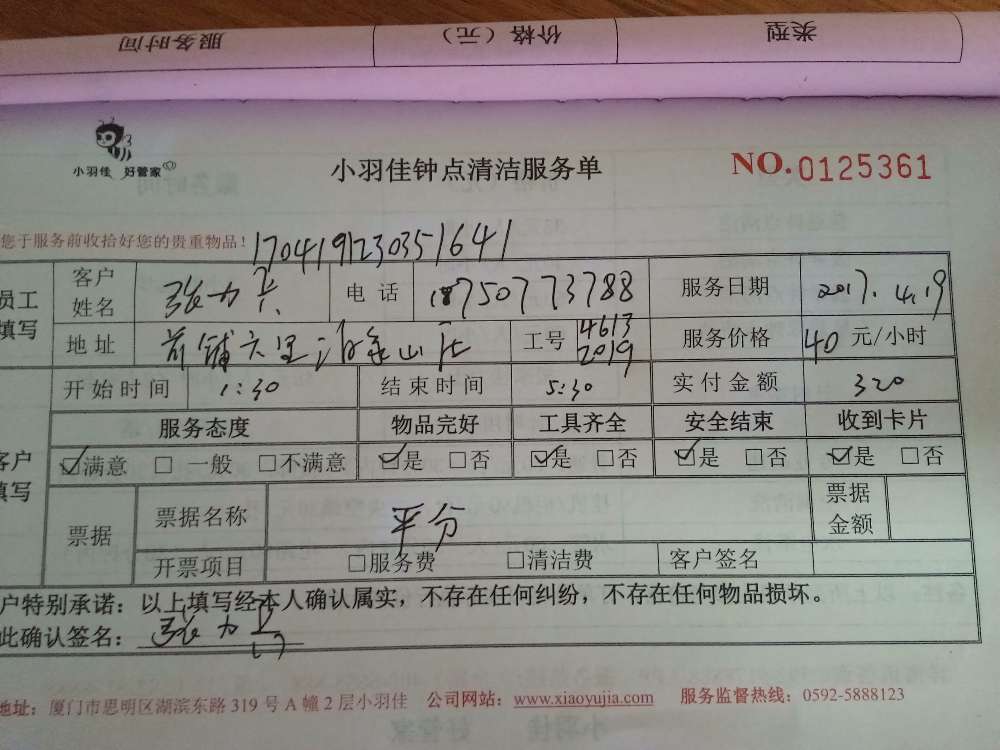 服务时间 价格（元） 类型
小羽佳 好管家
小羽佳钟点清洁服务单
NO.0125361
您于服务前收拾好您的贵重物品！170419123035 1641
员工填写 客户姓名 张力 电话 18750773788 服务日期 2017.4.19
地址 前铺六里 工号 4613 2019 服务价格 40元/小时
客户填写 开始时间 1:30 结束时间 5:30 实付金额 320
服务态度 物品完好 工具齐全 安全结束 收到卡片
☑满意 □一般 □不满意 ☑是 □否 ☑是 □否 ☑是 □否 ☑是 □否
票据 票据名称 平分 票据金额
开票项目 □服务费 □清洁费 客户签名
户特别承诺：以上填写经本人确认属实，不存在任何纠纷，不存在任何物品损坏。
此确认签名：张力
地址：厦门市思明区湖滨东路319号A幢2层小羽佳 公司网站：www.xiaoyujia.com 服务监督热线：0592-5888123